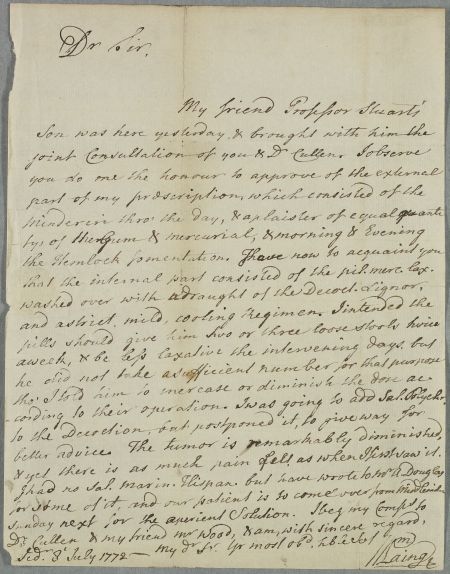 Dr Sir.
My friend Professor Stuart's
Son was here yesterday, & brought with him the
joint Consultation of you & Dr Cullen. I observe
you do me the honour to approve of the external
part of my prescription, which consisted of the
Mindereri thro' the day, & a plaister of equal quanti
tys of the Gum & mercurial, & morning & Evening
the Hemlock fomentation. I have now to acquaint you
that the internal part consisted of the pil. merc. lax.
washed over with a draught of the Decoct. Lignor.
and a strict, mild, cooling Regimen. I intended the
pills should give him two or three loose stools twice
a week, & be less laxative the intervening days, but
he did not take a sufficient number for that purpose
tho' I told him to increase or diminish the dose ac-
cording to their operation. I was going to add Sal. Polychr.
to the Decoction, but postponed it, to give way for
better advice. The tumor is remarkably diminished,
& yet there is as much pain felt as when I first saw it.
I had no Sal. marin. Hispan. but have wrote to Mr A. Douglas
for some of it, and our patient is to come over from
sunday next for the Solution. I beg my Comps to
Dr Cullen & my friend Mr Wood, & am, with sincere regard,
Jedr. 8th July 1772 – my dr Sr. Yr most obt. hble Sert
Laing